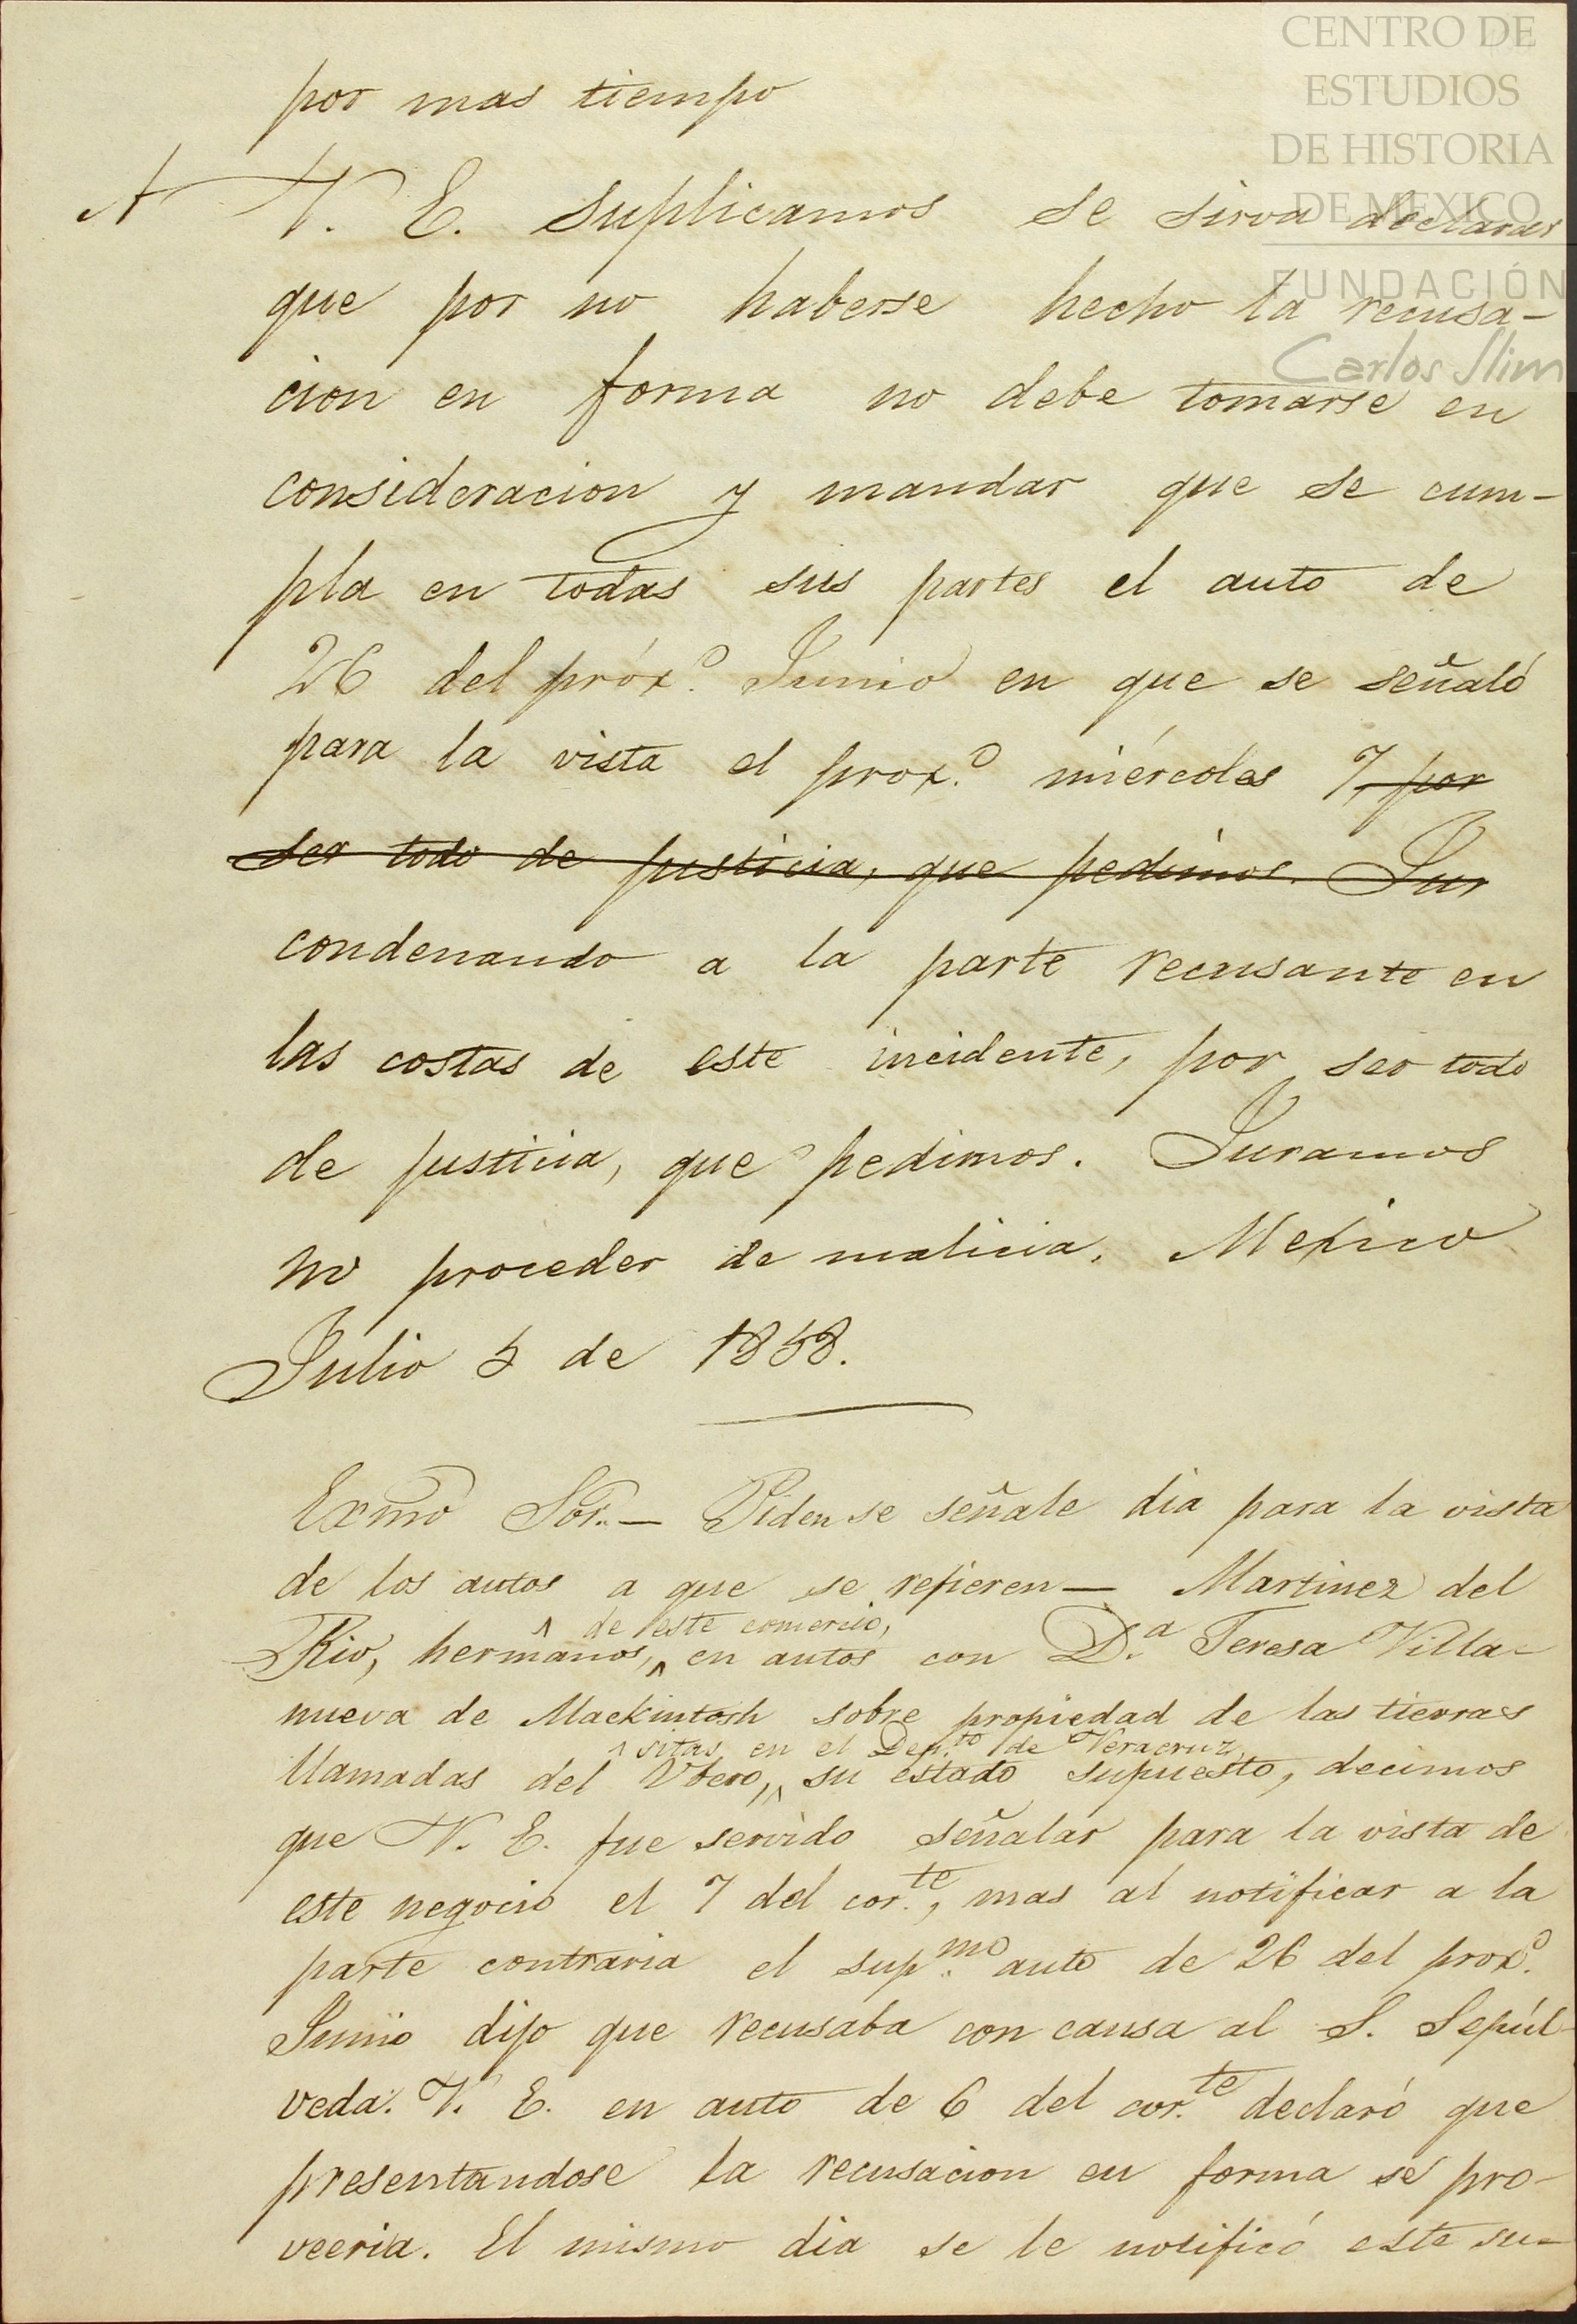 CENTRO DE
ESTUDIOS
DE HISTORIA
DE MEXICO
FUNDACIÓN
Carlos Slim
por mas tiempo
A V. E. suplicamos se sirva declarar
que por no haberse hecho la recusa-
cion en forma no debe tomarse en
consideracion y mandar que se cum-
pla en todas sus partes el auto de
26 del próx.º Junio en que se señaló
para la vista el prox.º miércoles 7, por
ser todo de justicia, que pedimos. Jur
condenando a la parte recusante en
las costas de este incidente, por ser todo
de justicia, que pedimos. Juramos
no proceder de malicia. Mexico
Julio 5 de 1858.
Exmo Sor.— Piden se señale dia para la vista
de los autos a que se refieren— Martinez del
^ de este comercio,
Rio, hermanos,^ en autos con D.ª Teresa Villa-
nueva de Mackintosh sobre propiedad de las tierras
^ sitas en el Dep.to de Veracruz,
llamadas del Vbero,^ su estado supuesto, decimos
que V. E. fue servido señalar para la vista de
este negocio el 7 del cor.te, mas al notificar a la
parte contraria el sup.mo auto de 26 del prox.º
Junio dijo que recusaba con causa al S. Sepúl-
veda. V. E. en auto de 6 del cor.te declaró que
presentandose la recusacion en forma se pro-
veeria. El mismo dia se le notificó este su-